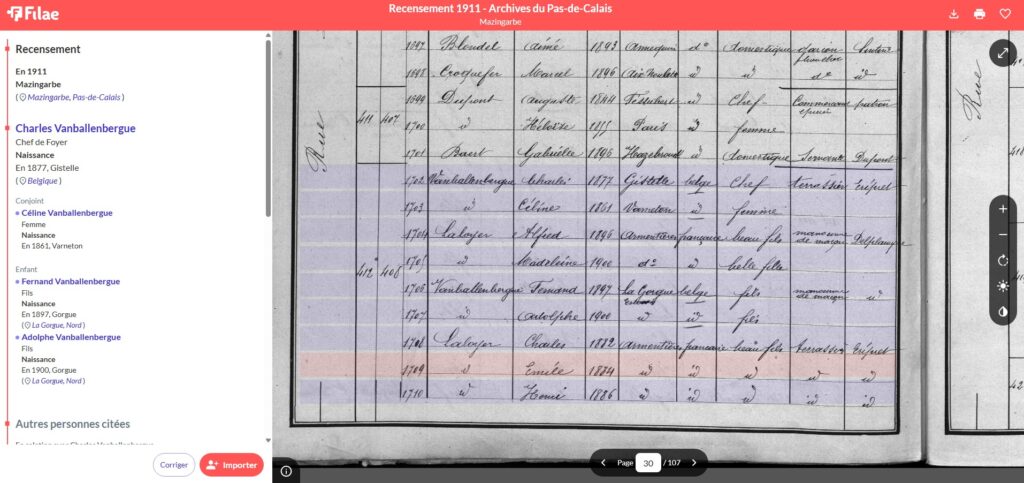 Filae
Recensement 1911 - Archives du Pas-de-Calais
Mazingarbe
Recensement
En 1911
Mazingarbe
( Mazingarbe, Pas-de-Calais )
Charles Vanballenbergue
Chef de Foyer
Naissance
En 1877, Gistelle
( Belgique )
Conjoint
Céline Vanballenbergue
Femme
Naissance
En 1861, Varneton
Enfant
Fernand Vanballenbergue
Fils
Naissance
En 1897, Gorgue
( La Gorgue, Nord )
Adolphe Vanballenbergue
Fils
Naissance
En 1900, Gorgue
( La Gorgue, Nord )
Autres personnes citées
Corriger
Importer
Rue
1697 Blondel Aimé 1893 Annequin do domestique
1698 Crocquefer Marcel 1896 id id do id
411 407
1699 Dupont Auguste 1844 Festubert id Chef Commerçant épicier patron
1700 id Héloïse 1855 Paris id femme
1701 Baert Gabrielle 1895 Hazebrouck id domestique Servante Dupont
1702 Vanballenbergue Charles 1877 Gistelle belge Chef terrassier
1703 id Céline 1861 Varneton id femme
1704 Laloyer Alfred 1896 Armentières française beau fils manoeuvre de maçon Delplanque
412 408
1705 id Madeleine 1900 do id belle fille
1706 Vanballenbergue Fernand 1897 La Gorgue belge fils manoeuvre de maçon id
1707 id Adolphe 1900 id id fils
1708 Laloyer Charles 1882 Armentières française beau fils terrassier
1709 id Emile 1884 id id id id id
1710 id Henri 1886 id id id id id
Rue
Page 30 / 107